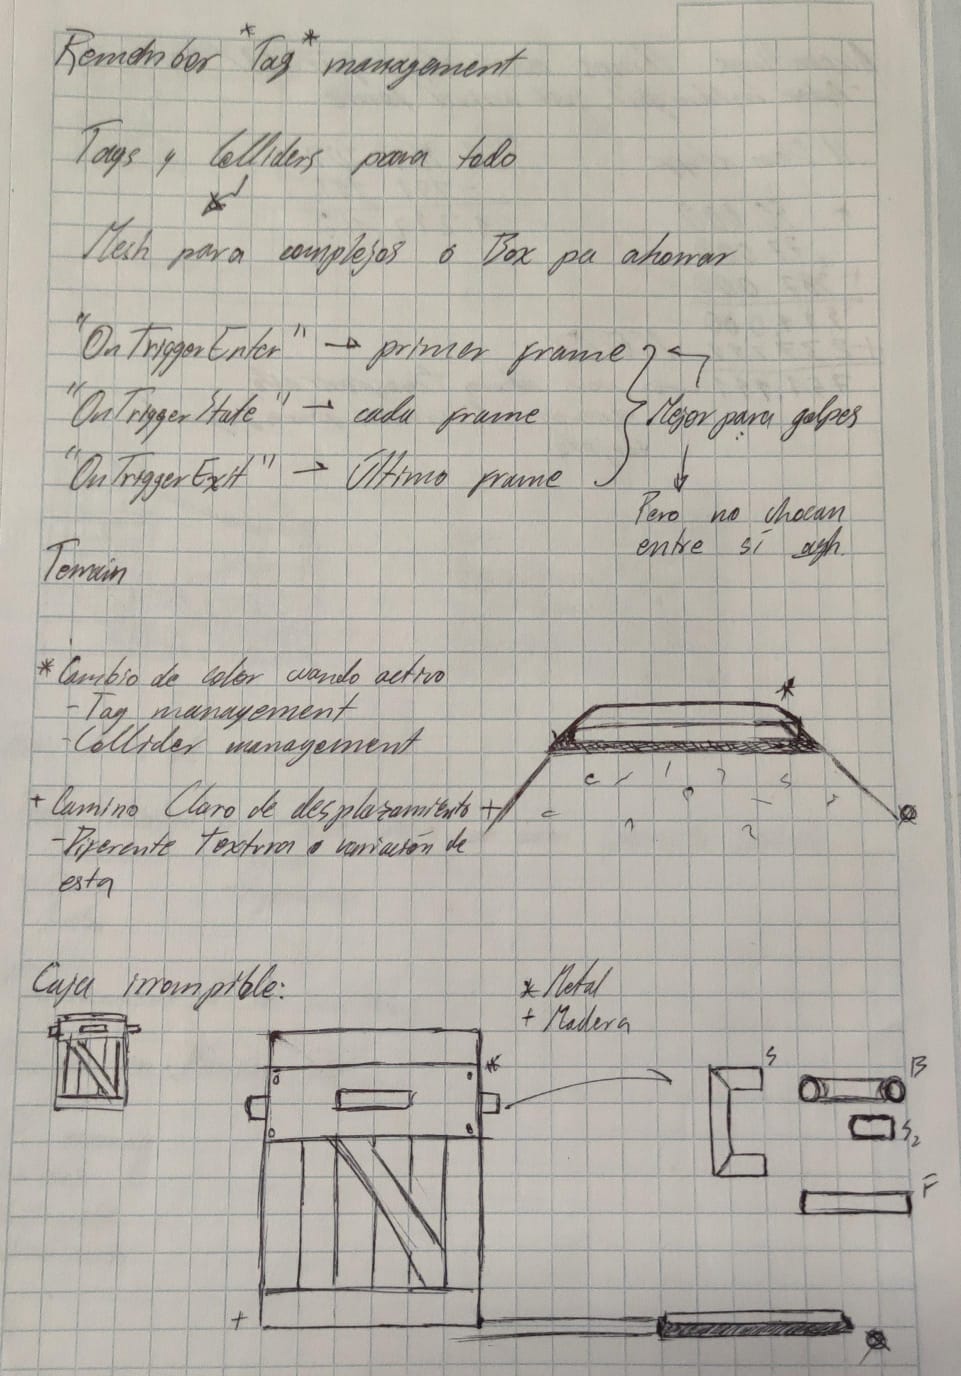 Remember *Tag* management
Tags y Colliders para todo
Mesh para complejos o Box pa ahorrar
"OnTriggerEnter" → primer frame
"OnTriggerState" → cada frame
"OnTriggerExit" → Último frame
Mejor para golpes
Pero no chocan
entre sí agh.
Terrain
* Cambio de color cuando activo
- Tag management
- Collider management
+ Camino Claro de desplazamiento +
- Diferente Textura o variación de
esta
*
Caja irrompible:
* Metal
+ Madera
*
S
B
S2
F
+